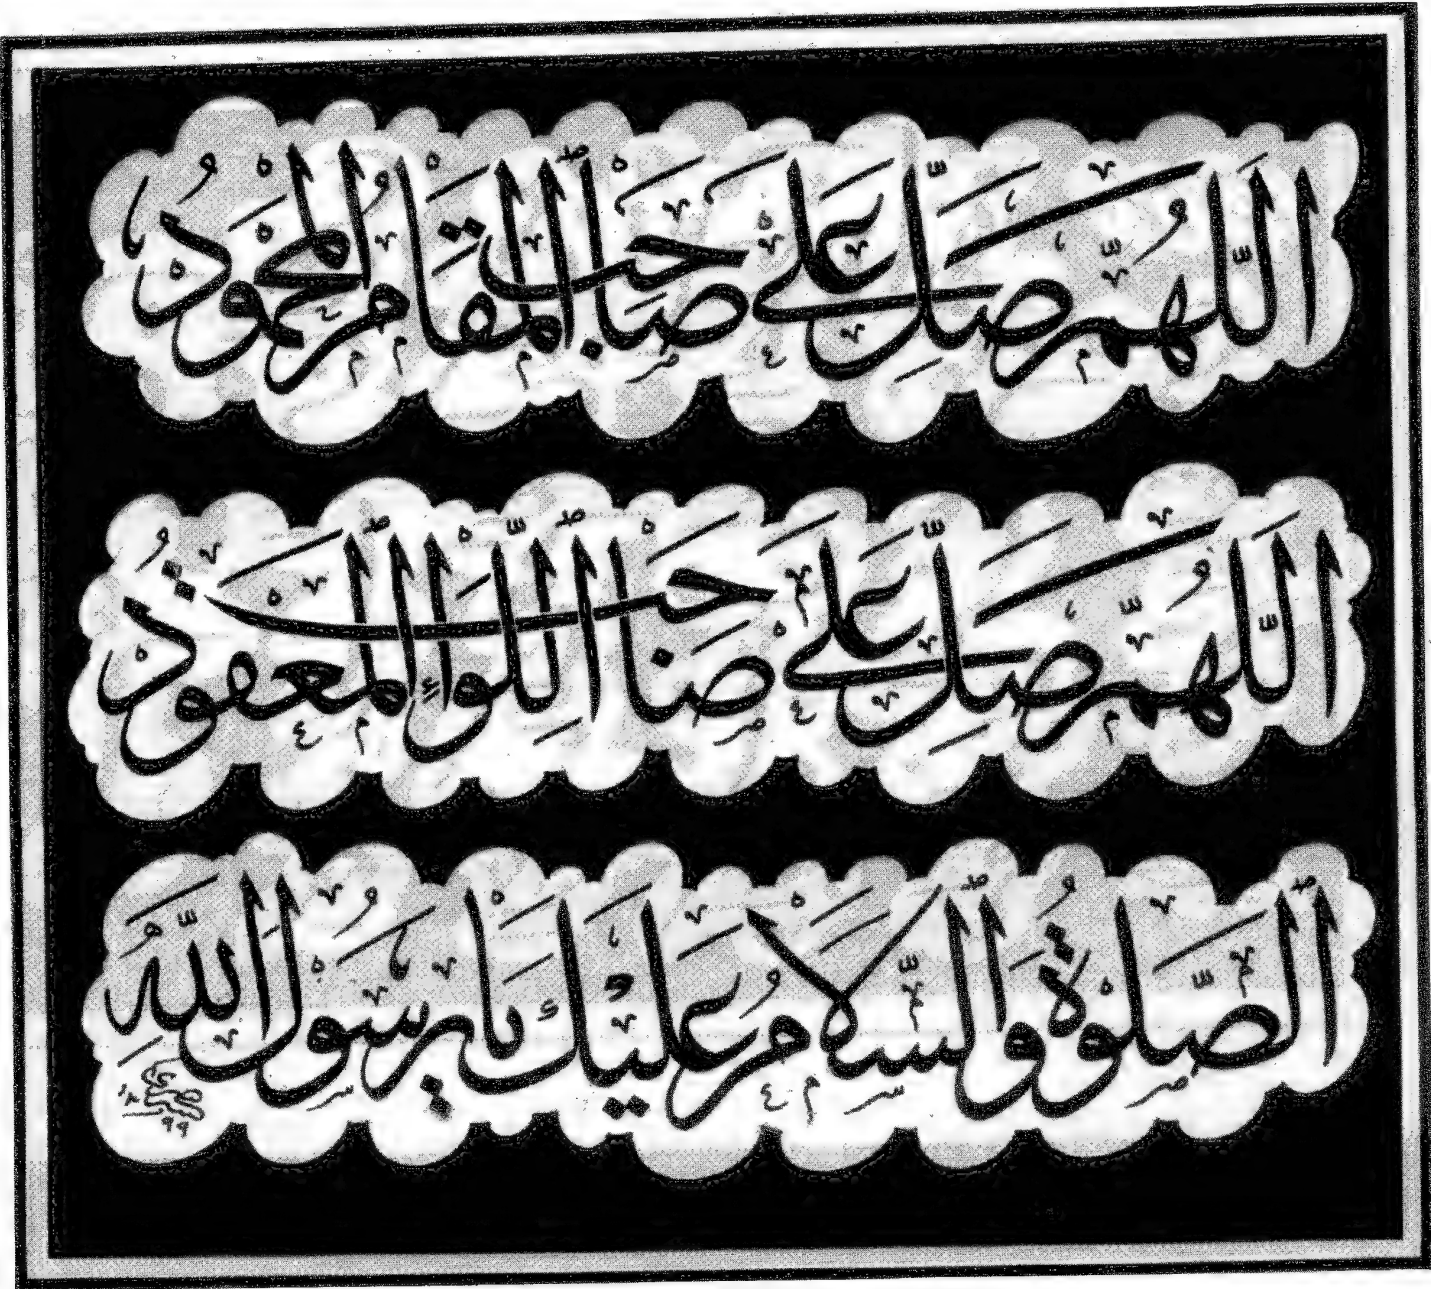 اللّٰهم صلّ على صاحب المقام المحمود
اللّٰهم صلّ على صاحب اللّواء المعقود
الصّلوة والسّلام عليك يا رسول الله